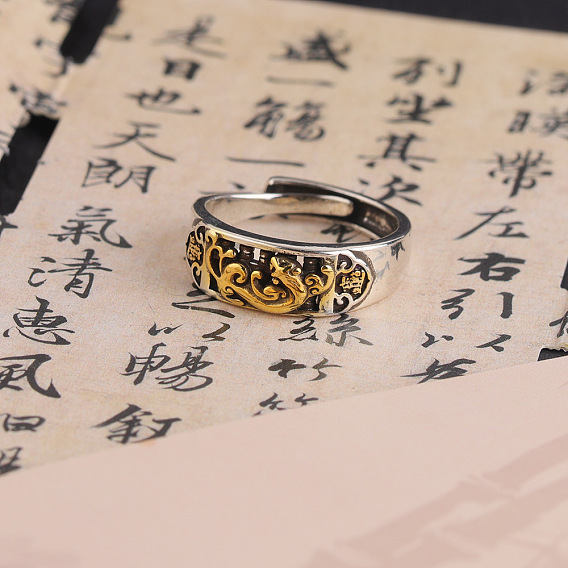 湍暎帶左右引以為
列坐其次絲竹
盛一觴一以暢敘
是日也天朗氣清惠風和